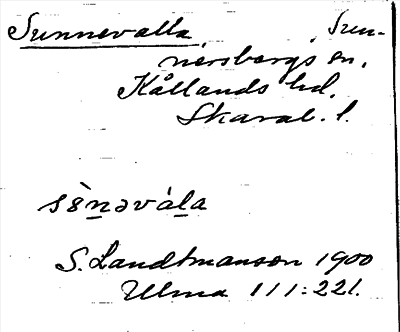 Sunnevalla, Sun-
nersbergs sn,
Kållands hd,
Skarab. l.
sö̀nəvála
S. Landtmanson 1900
Ulma 111:221.